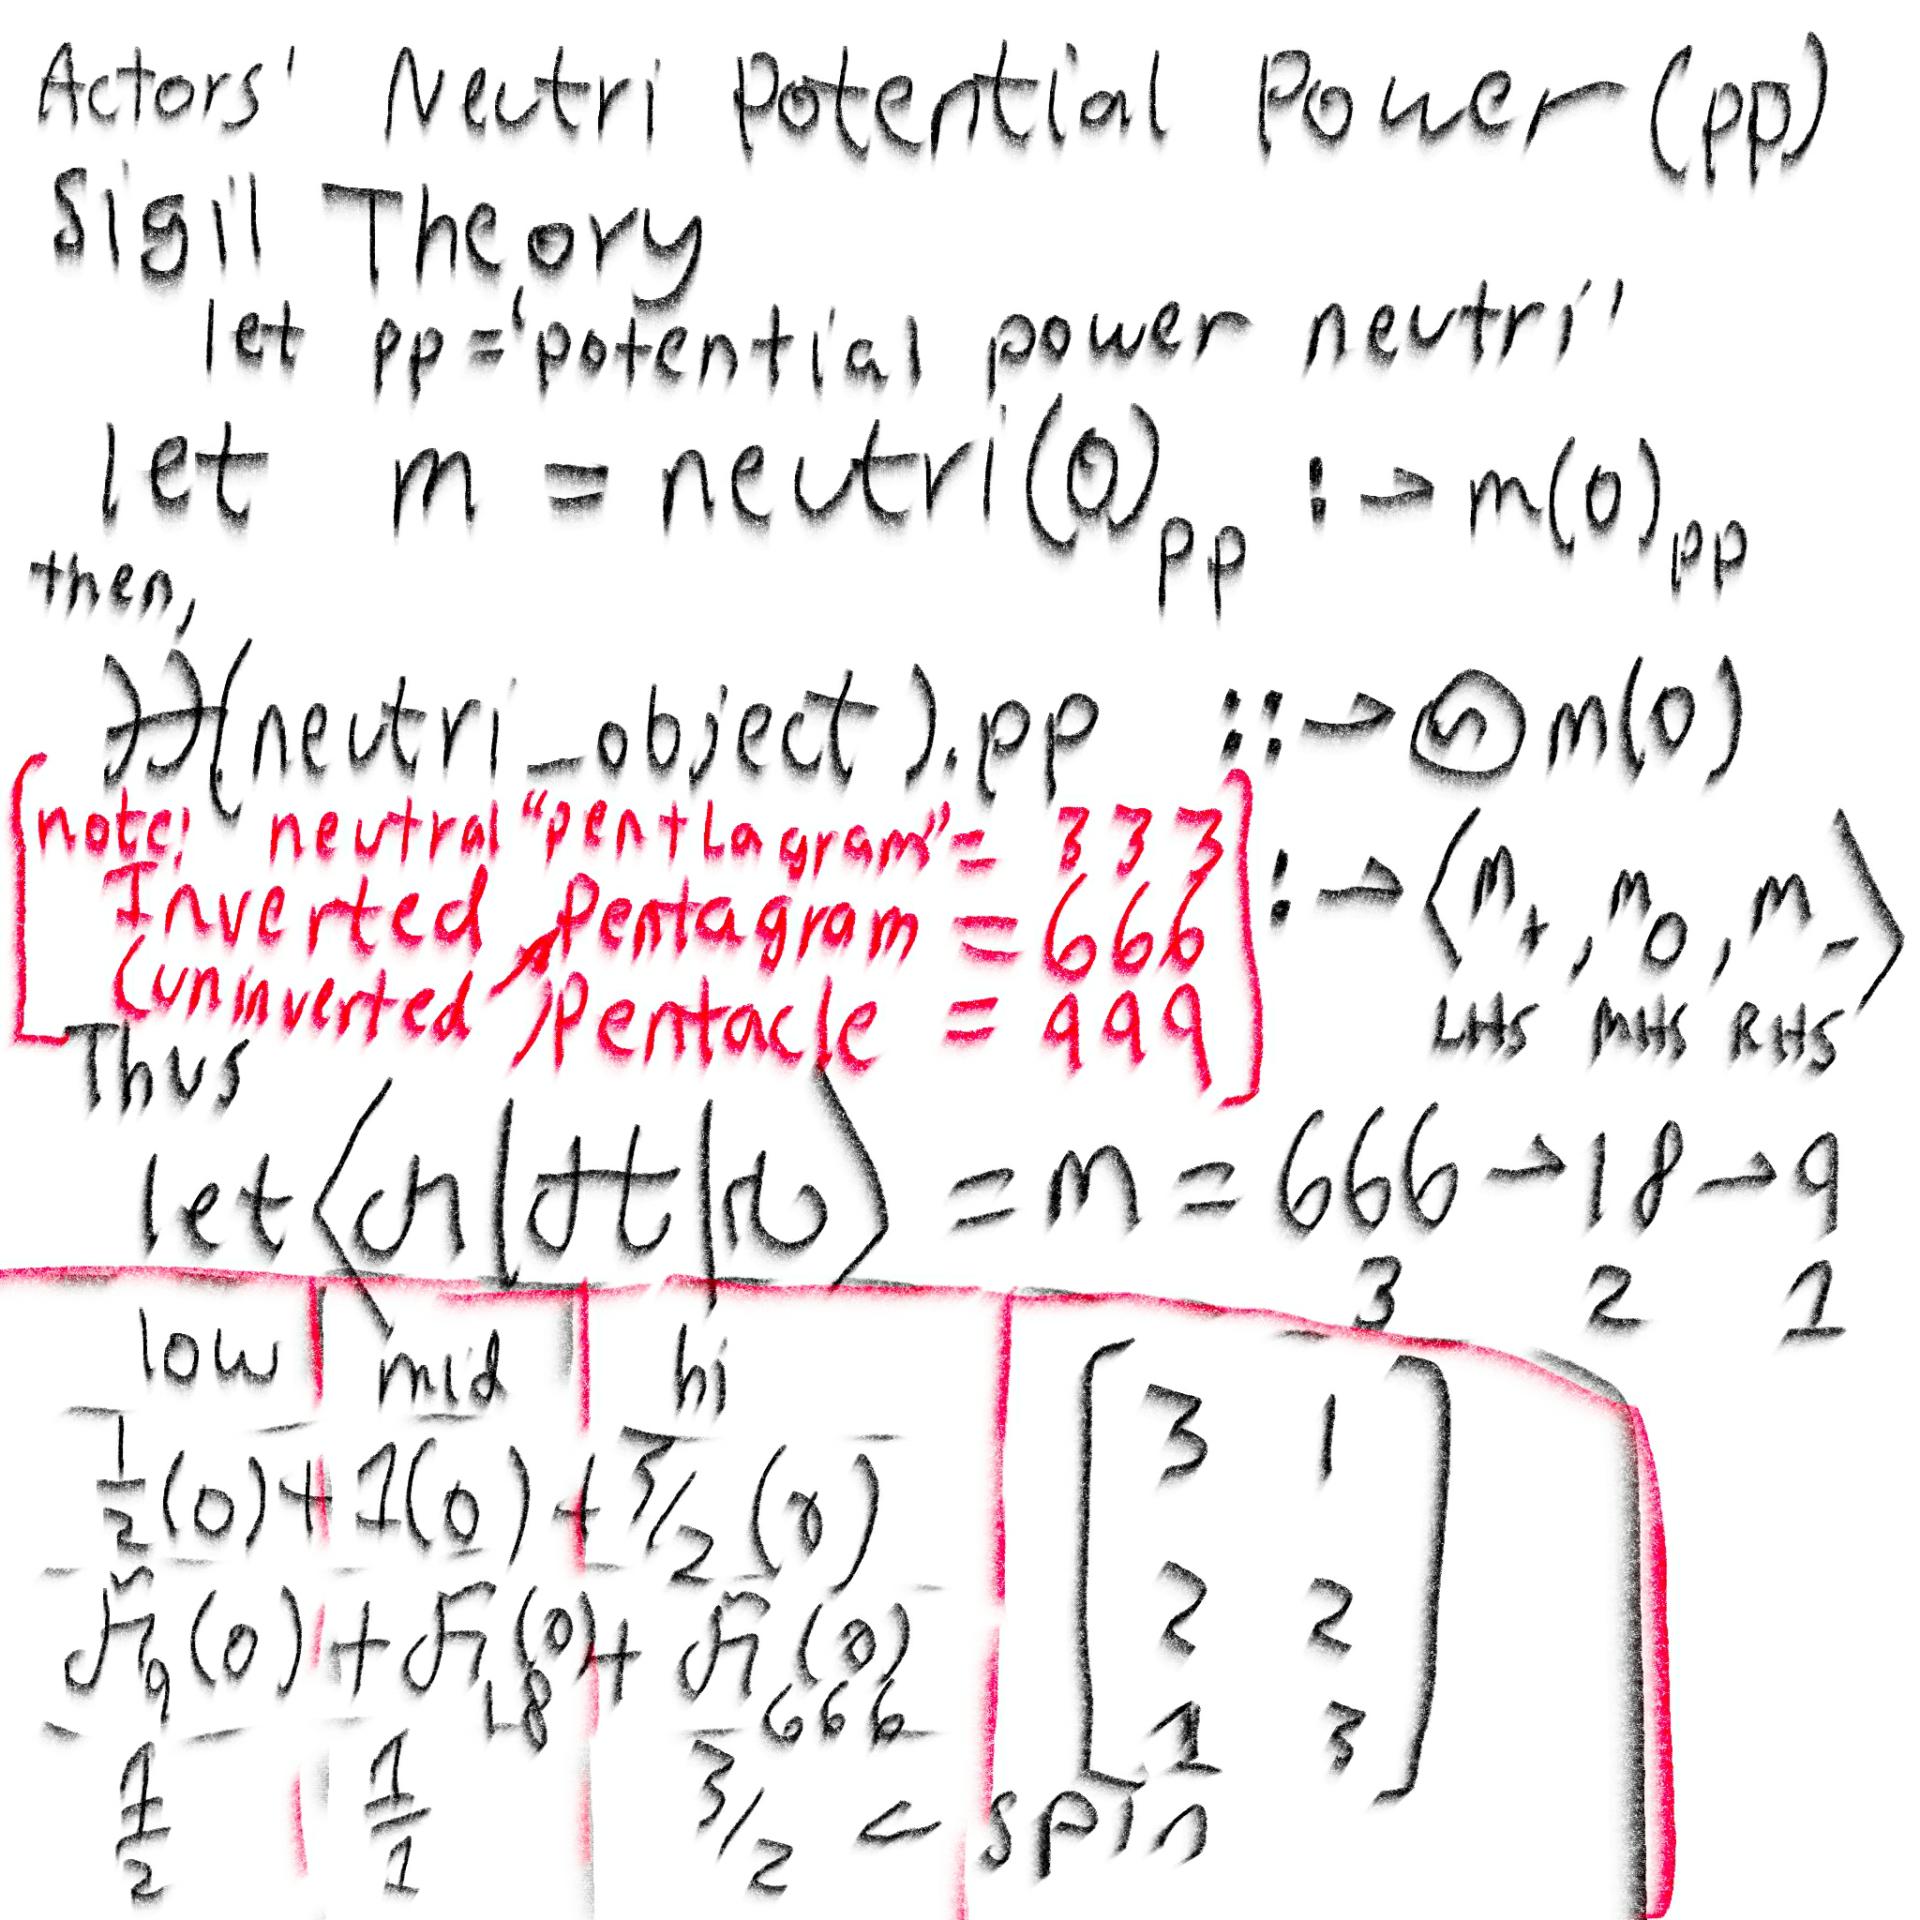 Actors' Neutri Potential Power (pp)
Sigil Theory
let pp = 'potential power neutri'
let m = neutri(0)pp :→ m(0)pp
then,
(neutri_object).pp ::→ m(0)
[note: neutral "pentlagram" = 333
Inverted Pentagram = 666
(uninverted) Pentacle = 999]
:→ ⟨m+, m0, m-⟩
LHS MHS RHS
Thus
let = m = 666 → 18 → 9
3 2 1
low mid hi
1/2(0) + 1(0) + 3/2(0)
9(0) + 18(0) + 666(0)
1/2 1/1 3/2 < spin
3 1
2 2
1 3